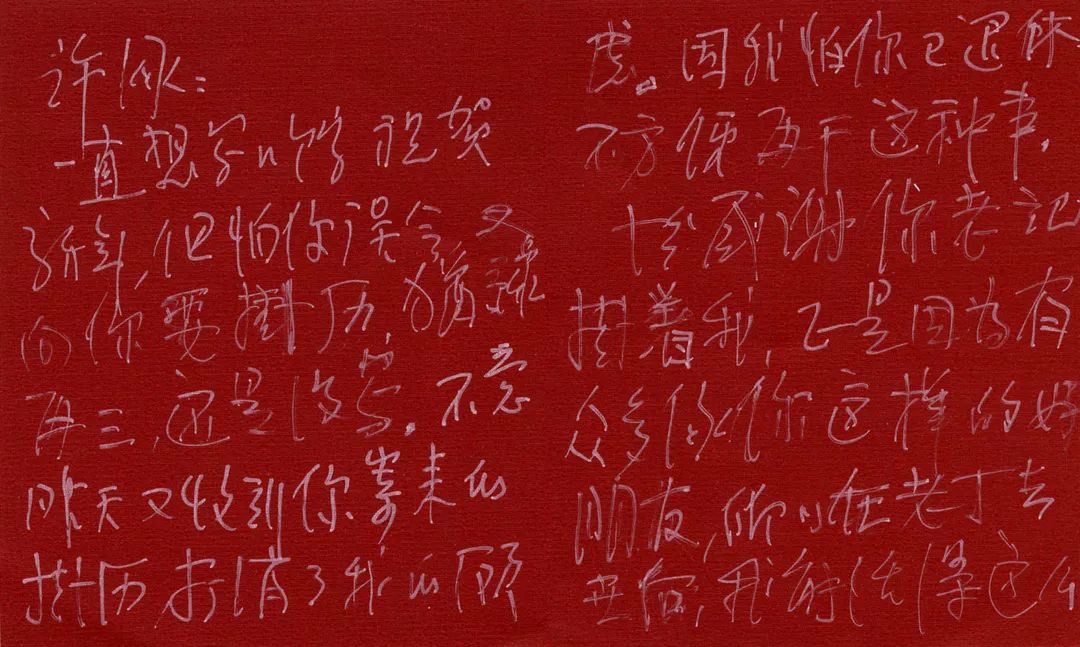 许
一直想写信祝贺
新年,但怕你误会又
向你要掛历,犹豫
再三,还是没写。不意
昨天又收到你寄来的
掛历打消了我的顾
虑。因我怕你已退休
不方便再干这种事,
十分感谢你老记
掛着我,正是因为有
众多像你这样的好
朋友,所以在老丁去
世后,我能活得这么